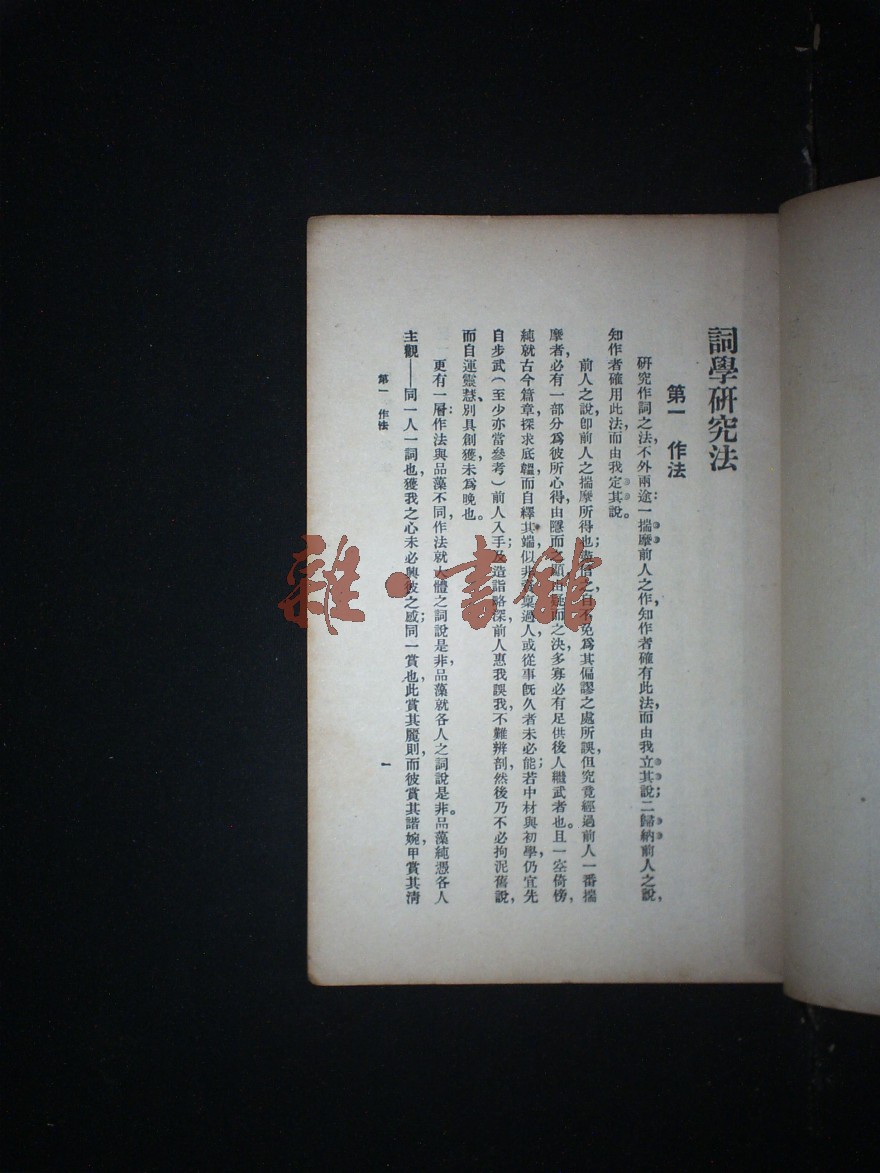 詞學研究法
第一 作法
研究作詞之法,不外兩途:一揣摩前人之作,知作者確有此法,而由我立其說;二歸納前人之說,
知作者確用此法,而由我定其說。
前人之說,即前人之揣摩所得也;盡信之,自不免爲其偏謬之處所誤,但究竟經過前人一番揣
摩者,必有一部分爲彼所心得,由隱而之顯,由疑而之決,多寡必有足供後人繼武者也。且一空倚傍,
純就古今篇章,探求底韞,而自繹其端,似非稟過人,或從事旣久者,未必能;若中材與初學,仍宜先
自步武(至少亦當參考)前人入手;及造詣略深,前人惠我誤我,不難辨剖,然後乃不必拘泥舊說,
而自運靈慧、別具創獲,未爲晚也。
更有一層:作法與品藻不同,作法就大體之詞說是非,品藻就各人之詞說是非。品藻純憑各人
主觀——同一人一詞也,獲我之心,未必興彼之感;同一賞也,此賞其麗則,而彼賞其諧婉,甲賞其淸
第一 作法
一
雜·書館